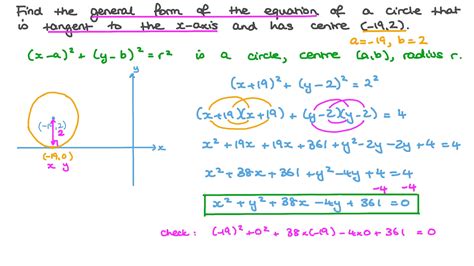 Find the general form of the equation of a circle that
is tangent to the x-axis and has centre (-19,2).
a=-19, b=2
(x-a)² + (y-b)² = r² is a circle, centre (a,b), radius r.
(x+19)² + (y-2)² = 2²
(x+19)(x+19) + (y-2)(y-2) = 4
x² + 19x + 19x + 361 + y² - 2y - 2y + 4 = 4
x² + 38x + 361 + y² - 4y + 4 = 4
-4 -4
x² + y² + 38x - 4y + 361 = 0
check: (-19)² + 0² + 38×(-19) - 4×0 + 361 = 0
y
(-19,2)
2
x
(-19,0)
x y